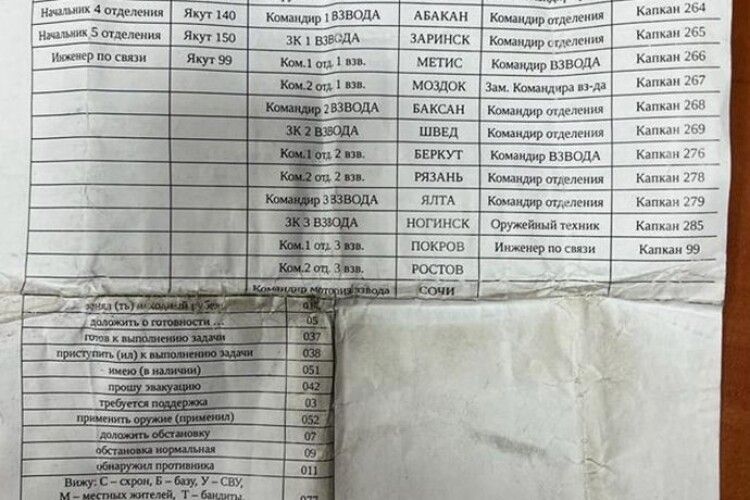 Начальник 4 отделения Якут 140 Командир 1 ВЗВОДА АБАКАН Командир отделения Капкан 264
Начальник 5 отделения Якут 150 ЗК 1 ВЗВОДА ЗАРИНСК Командир отделения Капкан 265
Инженер по связи Якут 99 Ком.1 отд. 1 взв. МЕТИС Командир ВЗВОДА Капкан 266
Ком.2 отд. 1 взв. МОЗДОК Зам. Командира вз-да Капкан 267
Командир 2 ВЗВОДА БАКСАН Командир отделения Капкан 268
ЗК 2 ВЗВОДА ШВЕД Командир отделения Капкан 269
Ком.1 отд. 2 взв. БЕРКУТ Командир ВЗВОДА Капкан 276
Ком.2 отд. 2 взв. РЯЗАНЬ Командир отделения Капкан 278
Командир 3 ВЗВОДА ЯЛТА Командир отделения Капкан 279
ЗК 3 ВЗВОДА НОГИНСК Оружейный техник Капкан 285
Ком.1 отд. 3 взв. ПОКРОВ Инженер по связи Капкан 99
Ком.2 отд. 3 взв. РОСТОВ
Командир взвода СОЧИ
(ть) исходный
доложить о готовности ... 05
готов к выполнению задачи 037
приступить (ил) к выполнению задачи 038
имею (в наличии) 051
прошу эвакуацию 042
требуется поддержка 03
применить оружие (применил) 052
доложить обстановку 07
обстановка нормальная 09
обнаружил противника 011
Вижу: С – схрон, Б – базу, У – СВУ,
М – местных жителей, Т – бандиты